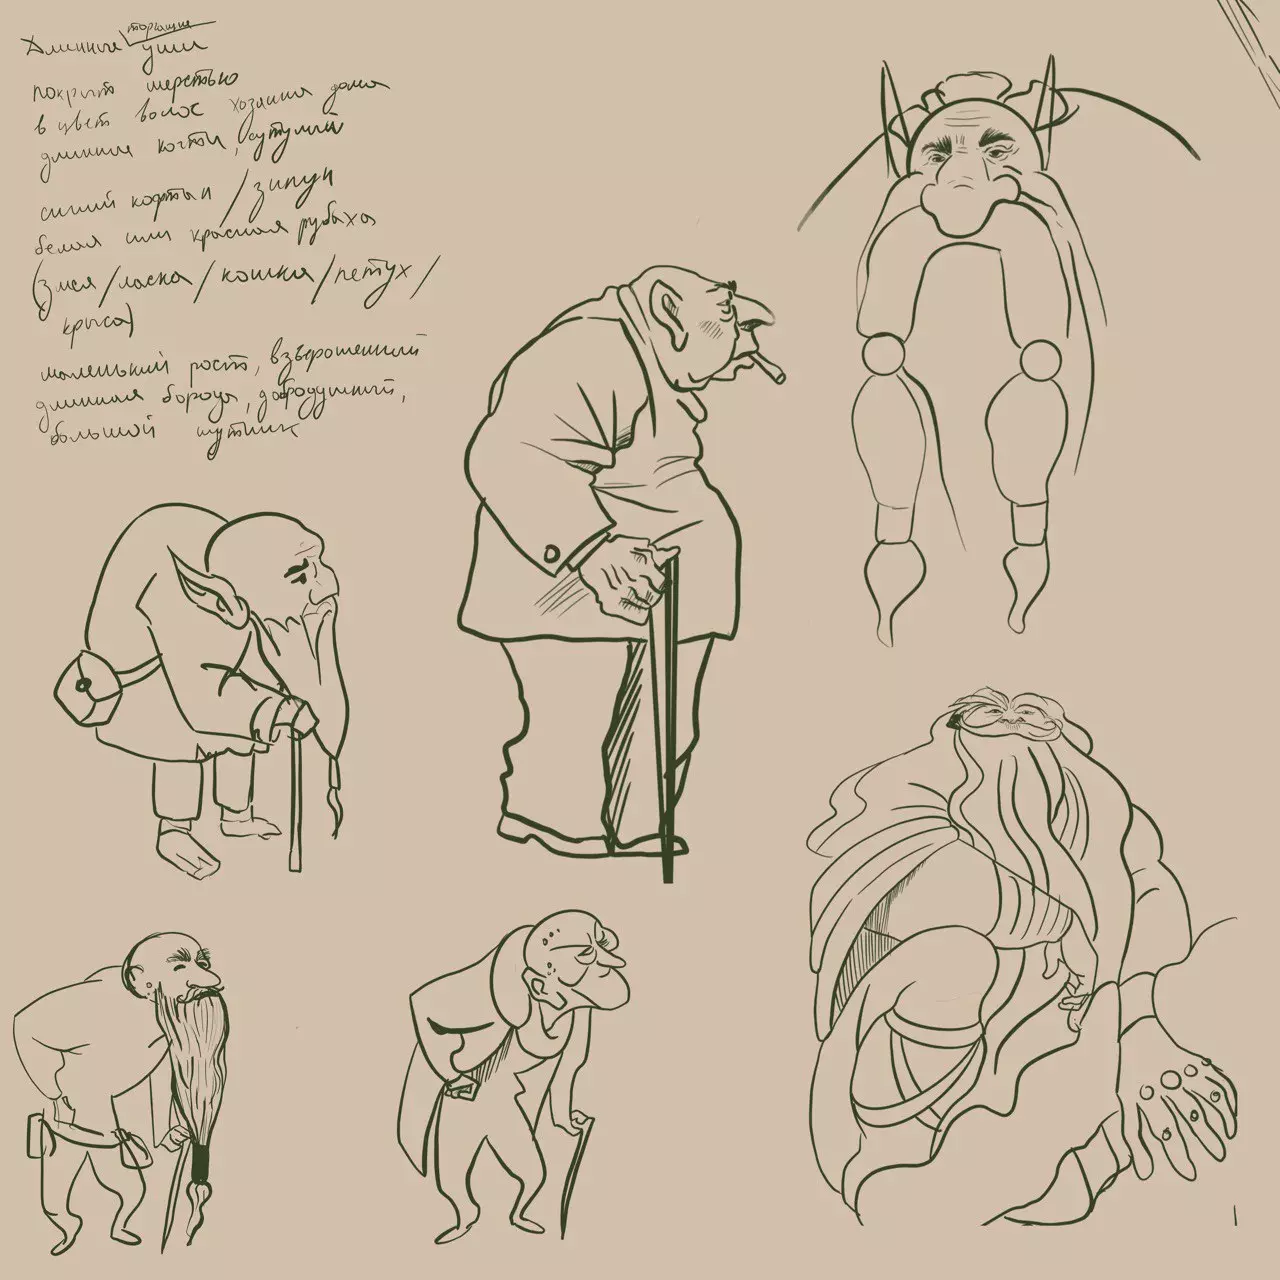 Длинные торчащие уши
покрыт шерстью
в цвет волос хозяина дома
длинные когти, сутулый
синий кафтан / зипун
белая или красная рубаха
(змея / ласка / кошка / петух /
крыса)
маленький рост, взъерошенный
длинная борода, добродушный,
большой шутник